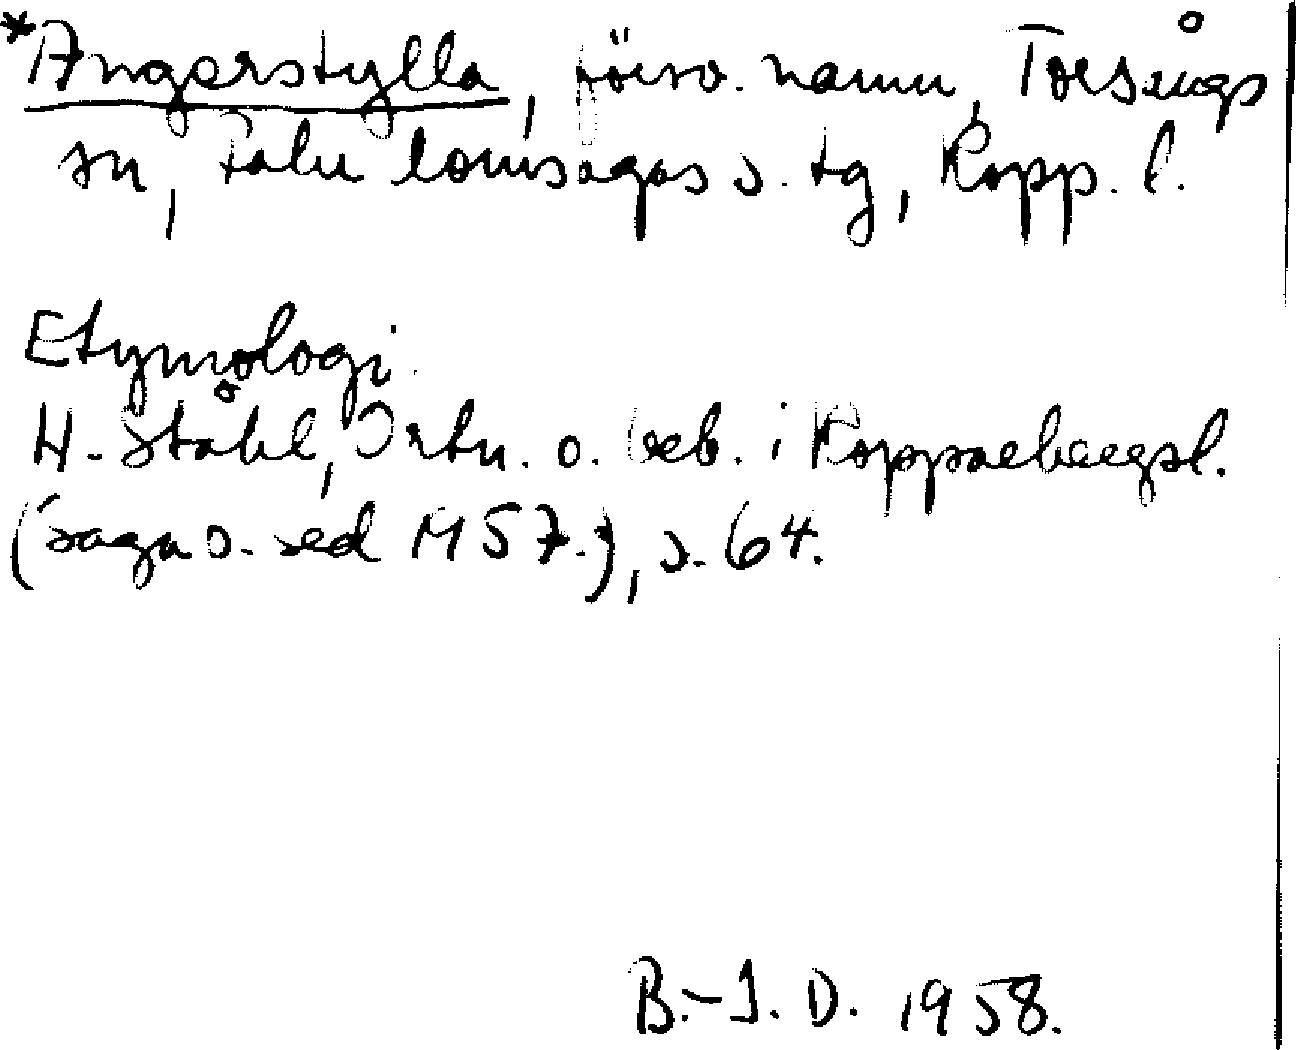 *Angerstylla, försv. namn, Torsångs
sn, Falu domsagas s. tg, Kopp. l.
Etymologi.
H. Ståhl, Ortn. o. beb. i Kopparbergsl.
(Saga o. sed 1957.), s. 64.
B.-I. D. 1958.